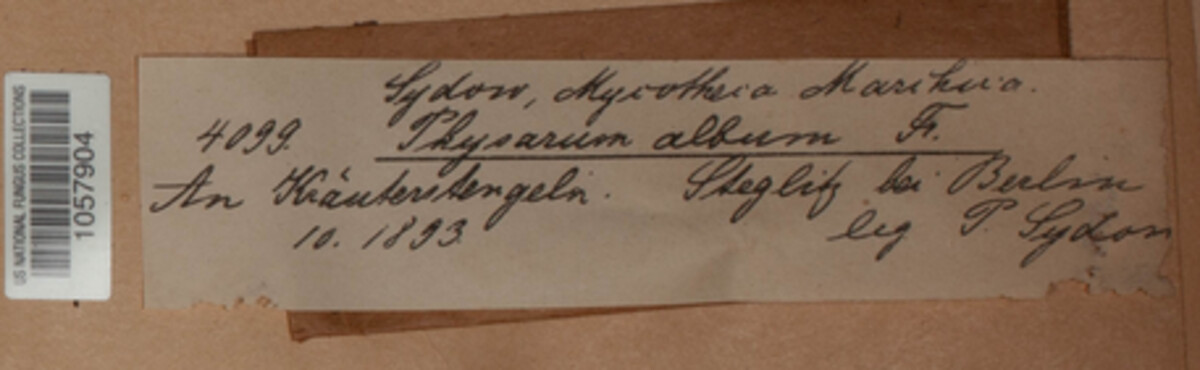 Sydow, Mycotheca Marchica.
4099. Physarum album Fr.
An Kräuterstengeln. Steglitz bei Berlin
10. 1893.
leg P. Sydow
US NATIONAL FUNGUS COLLECTIONS
1057904